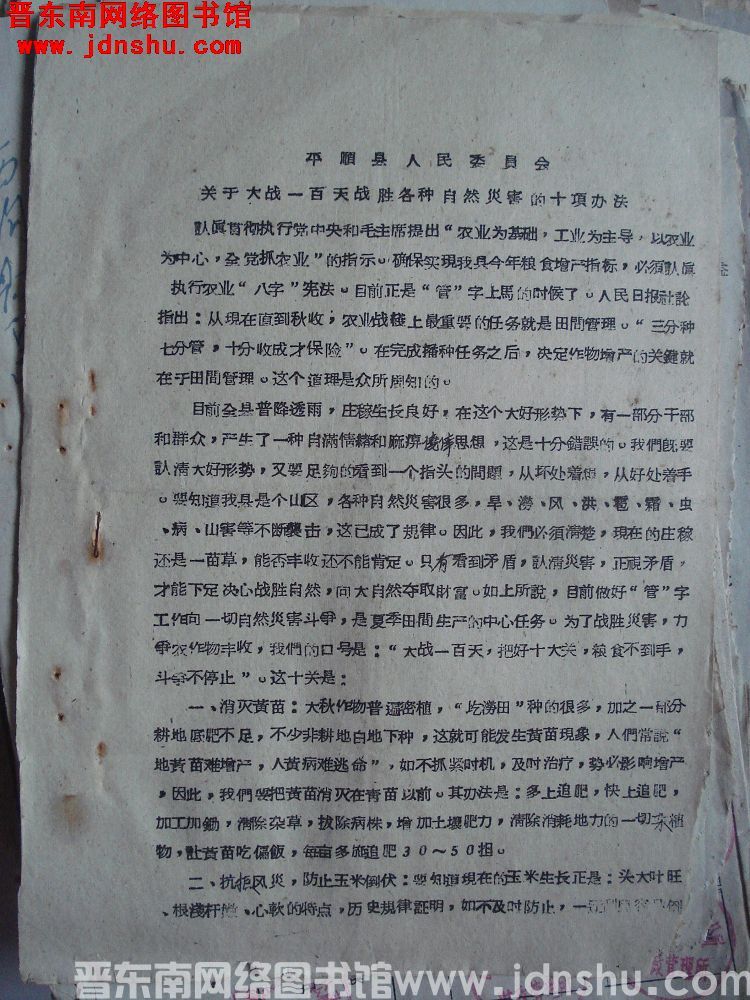 晋东南网络图书馆
www.jdnshu.com
平順县人民委員会
关于大战一百天战胜各种自然災害的十項办法
認眞貫彻执行党中央和毛主席提出“农业为基础，工业为主导，以农业
为中心，全党抓农业”的指示。确保实現我县今年粮食增产指标，必須認眞
执行农业“八字”宪法。目前正是“管”字上馬的时候了。人民日报社論
指出：从現在直到秋收，农业战綫上最重要的任务就是田間管理。“三分种
七分管，十分收成才保险”。在完成播种任务之后，决定作物增产的关鍵就
在于田間管理。这个道理是众所周知的。
目前全县普降透雨，庄稼生长良好，在这个大好形势下，有一部分干部
和群众，产生了一种自滿情緒和麻痹思想，这是十分錯誤的。我們旣要
認清大好形势，又要足夠的看到一个指头的問題，从坏处着想，从好处着手
。要知道我县是个山区，各种自然災害很多，旱、澇、风、洪、雹、霜、虫
、病、山害等不断襲击，这已成了規律。因此，我們必須清楚，現在的庄稼
还是一苗草，能否丰收还不能肯定。只有看到矛盾，認清災害，正視矛盾，
才能下定决心战胜自然，向大自然夺取財富。如上所說，目前做好“管”字
工作向一切自然災害斗爭，是夏季田間生产的中心任务。为了战胜災害，力
爭农作物丰收，我們的口号是：“大战一百天，把好十大关，粮食不到手，
斗爭不停止”。这十关是：
一、消灭黃苗：大秋作物普遍密植，“圪澇田”种的很多，加之一部分
耕地底肥不足，不少非耕地白地下种，这就可能发生黃苗現象，人們常說“
地黃苗难增产，人黃病难逃命”，如不抓紧时机，及时治疗，势必影响增产
，因此，我們要把黃苗消灭在青苗以前。其办法是：多上追肥，快上追肥，
加工加鋤，清除杂草，拔除病株，增加土壤肥力，清除消耗地力的一切杂植
物，讓黃苗吃偏飯，每亩多施追肥30～50担。
二、抗拒风災，防止玉米倒伏：要知道現在的玉米生长正是：头大叶旺
、根浅杆脆、心軟的特点，历史規律証明，如不及时防止，一
晋东南网络图书馆 www.jdnshu.com